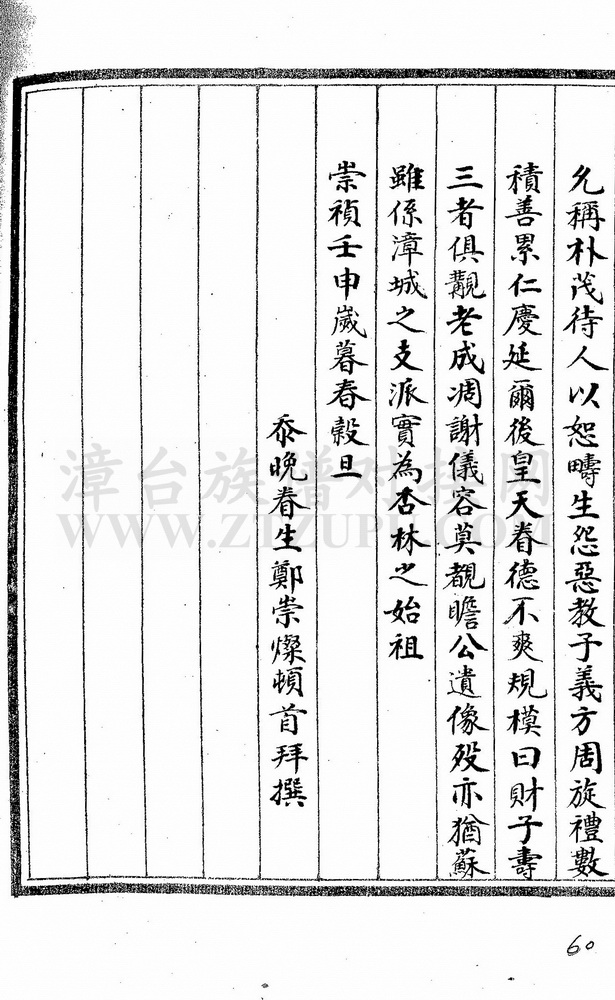 允稱朴茂待人以恕疇生怨惡教子義方周旋禮數
積善累仁慶延爾後皇天眷德不爽規模曰財子壽
三者俱覯老成凋謝儀容莫覩瞻公遺像歿亦猶蘇
雖係漳城之支派實為杏林之始祖
崇禎壬申歲暮春穀旦
忝晚眷生鄭崇燦頓首拜撰
漳台族谱对接网
WWW.ZTZUPU.COM
60